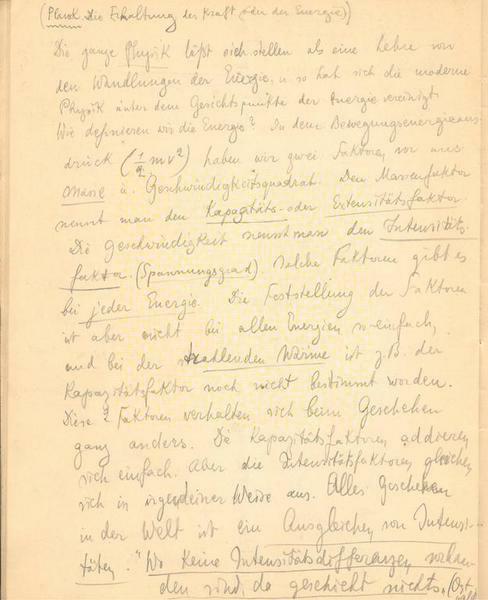 (Planck Die Erhaltung der Kraft oder der Energie)
Die ganze Physik läßt sich stellen als eine Lehre von
den Wandlungen der Energie, u so hat sich die moderne
Physik unter dem Gesichtspunkte der Energie vereinigt.
Wie definieren wir die Energie? In dem Bewegungsenergieaus-
druck (1/2 mv²) haben wir zwei Faktoren vor uns
Masse u. Geschwindigkeitsquadrat. Den Massenfaktor
nennt man den Kapazitäts- oder Extensitätsfaktor.
Die Geschwindigkeit nennt man den Intensitäts-
faktor. (Spannungsgrad). Solche Faktoren gibt es
bei jeder Energie. Die Feststellung der Faktoren
ist aber nicht bei allen Energien so einfach,
und bei der strahlenden Wärme ist z.B. der
Kapazitätsfaktor noch nicht bestimmt worden.
Diese 2 Faktoren verhalten sich beim Geschehen
ganz anders. Die Kapazitätsfaktoren addieren
sich einfach. Aber die Intensitätsfaktoren gleichen
sich in irgendeiner Weise aus. Alles Geschehen
in der Welt ist ein Ausgleichen von Intensi-
täten. "Wo keine Intensitätsdifferenzen vorhan-
den sind, da geschieht nichts. (Ost